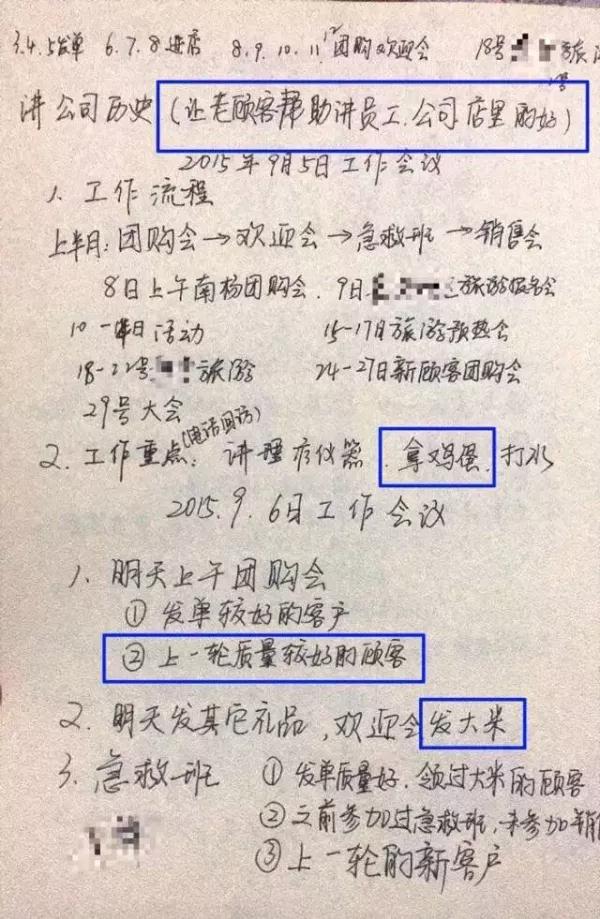 3.4.5发单 6.7.8进店 8.9.10.11.12团购欢迎会 18号 旅
讲公司历史(让老顾客帮助讲员工.公司店里的好)
2015年9月5日工作会议
1. 工作流程
上半月:团购会→欢迎会→急救班→销售会
8日上午南杨团购会. 9日 旅游报名会
10-14日活动 15-17日旅游预热会
18-22号 旅游 24-27日新顾客团购会
29号大会
(电话回访)
2. 工作重点:讲理疗仪器.拿鸡蛋.打水
2015.9.6日工作会议
1、明天上午团购会
① 发单较好的客户
② 上一轮质量较好的顾客
2. 明天发其它礼品,欢迎会发大米
3. 急救班 ① 发单质量好.领过大米的顾客
② 之前参加过急救班,未参加销
③ 上一轮的新客户